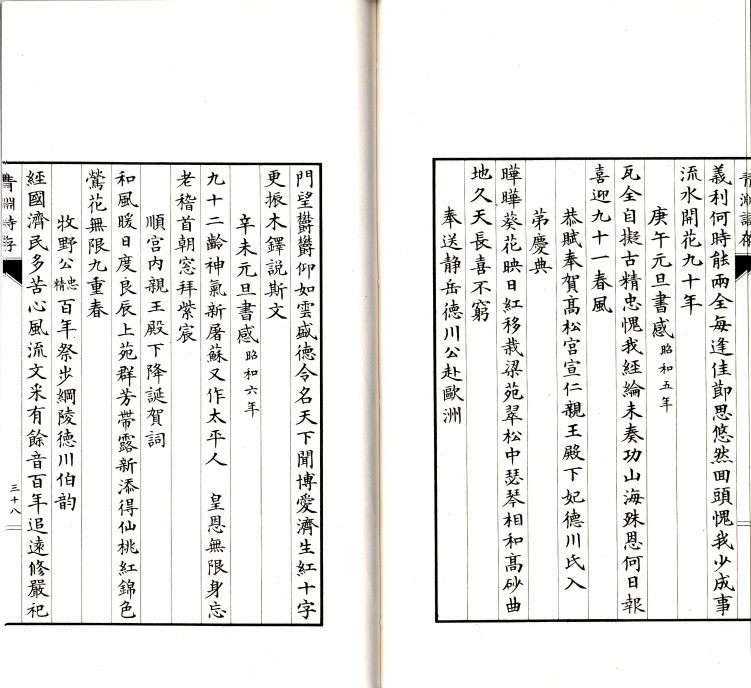 義利何時能兩全每逢佳節思悠然回頭愧我少成事
流水開花九十年
庚午元旦書感昭和五年
瓦全自擬古精忠愧我經綸未奏功山海殊恩何日報
喜迎九十一春風
恭賦奉賀高松宮宣仁親王殿下妃德川氏入
第慶典
曄曄葵花映日紅移栽梁苑翠松中瑟琴相和高砂曲
地久天長喜不窮
奉送静岳德川公赴歐洲
門望欝欝仰如雲盛德令名天下聞博愛濟生紅十字
更振木鐸説斯文
辛未元旦書感昭和六年
九十二齡神氣新屠蘇又作太平人 皇恩無限身忘
老稽首朝窓拜紫宸
順宮内親王殿下降誕賀詞
和風暖日度良辰上苑群芳帶露新添得仙桃紅錦色
鶯花無限九重春
牧野公忠精百年祭步綱陵德川伯韵
經國濟民多苦心風流文采有餘音百年追遠修嚴祀
青淵詩存
三十八